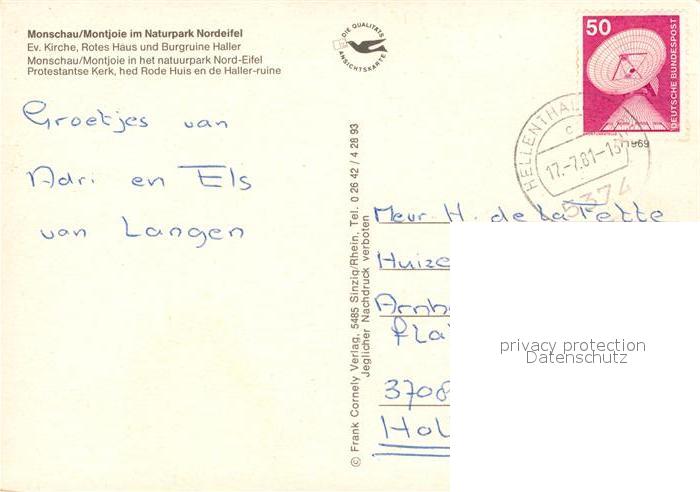 Monschau/Montjoie im Naturpark Nordeifel
Ev. Kirche, Rotes Haus und Burgruine Haller
Monschau/Montjoie in het natuurpark Nord-Eifel
Protestantse Kerk, hed Rode Huis en de Haller-ruine
DIE QUALITÄTS
ANSICHTSKARTE
50
DEUTSCHE BUNDESPOST
HELLENTHAL
17.-7.81-15
5374
1969
Groetjes van
Adri en Els
van Langen
© Frank Cornely Verlag, 5485 Sinzig/Rhein, Tel. 0 26 42 / 4 28 93
Jeglicher Nachdruck verboten
Meur. H. de la Fette
Huize
Arnh
Fla
3708
Hol
privacy protection
Datenschutz